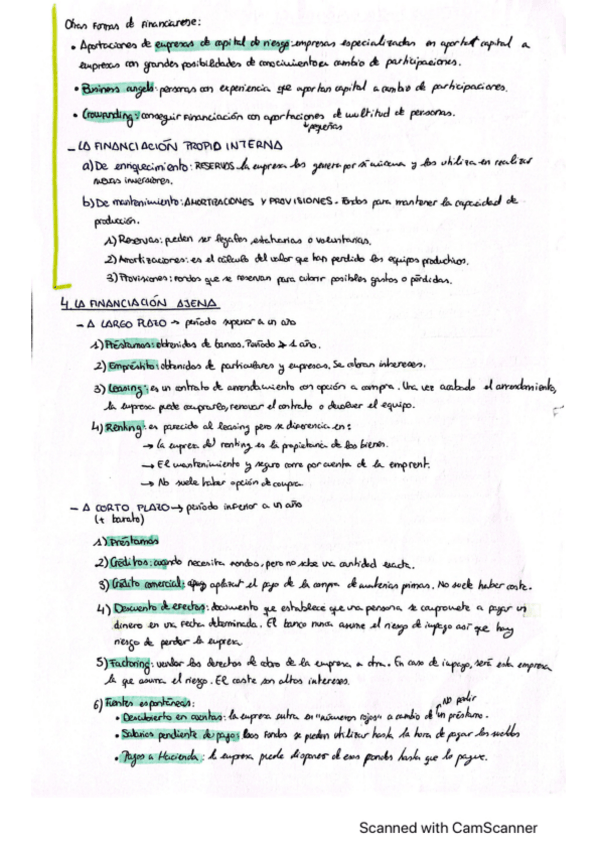 Otras formas de financiarse:
• Aportaciones de empresas de capital de riesgo: empresas especializadas en aportar capital a
empresas con grandes posibilidades de conocimiento en cambio de participaciones.
• Business angels: personas con experiencia que aportan capital a cambio de participaciones.
• Crowdfunding: conseguir financiación con aportaciones de multitud de personas.
↳ pequeñas
- LA FINANCIACIÓN PROPIA INTERNA
a) De enriquecimiento: RESERVAS. la empresa los genera por sí misma y los utiliza en realizar
nuevas inversiones.
b) De mantenimiento: AMORTIZACIONES Y PROVISIONES. Fondos para mantener la capacidad de
producción.
1) Reservas: pueden ser legales, estatutarias o voluntarias.
2) Amortizaciones: es el cálculo del valor que han perdido los equipos productivos.
3) Provisiones: fondos que se reservan para cubrir posibles gastos o pérdidas.
4. LA FINANCIACIÓN AJENA
- A LARGO PLAZO → período superior a un año
1) Préstamos: obtenidos de bancos. Período 1 año.
2) Empréstito: obtenidos de particulares y empresas. Se cobran intereses.
3) Leasing: es un contrato de arrendamiento con opción a compra. Una vez acabado el arrendamiento,
la empresa puede comprarlo, renovar el contrato o devolver el equipo.
4) Renting: es parecido al leasing pero se diferencia en:
→ la empresa del renting es la propietaria de los bienes.
→ El mantenimiento y seguro corre por cuenta de la emprent.
→ No suele haber opción de compra
- A CORTO PLAZO → período inferior a un año
(+ barato)
1) Préstamos
2) Créditos: cuando necesita fondos, pero no sabe una cantidad exacta.
3) Crédito comercial: aplazar el pago de la compra de materias primas. No suele haber coste.
4) Descuento de efectos: documento que establece que una persona se compromete a pagar un
dinero en una fecha determinada. El banco nunca asume el riesgo de impago así que hay
riesgo de perder la empresa
5) Factoring: vender los derechos de cobro de la empresa a otra. En caso de impago, será esta empresa
la que asuma el riesgo. El coste son altos intereses.
6) Fuentes espontáneas:
No pedir
• Descubierto en cuentas: la empresa entra en "números rojos" a cambio de un préstamo.
• Salarios pendiente de pago: esos fondos se pueden utilizar hasta la hora de pagar los sueldos
• Pagos a Hacienda: la empresa puede disponer de esos fondos hasta que lo pague.
Scanned with CamScanner